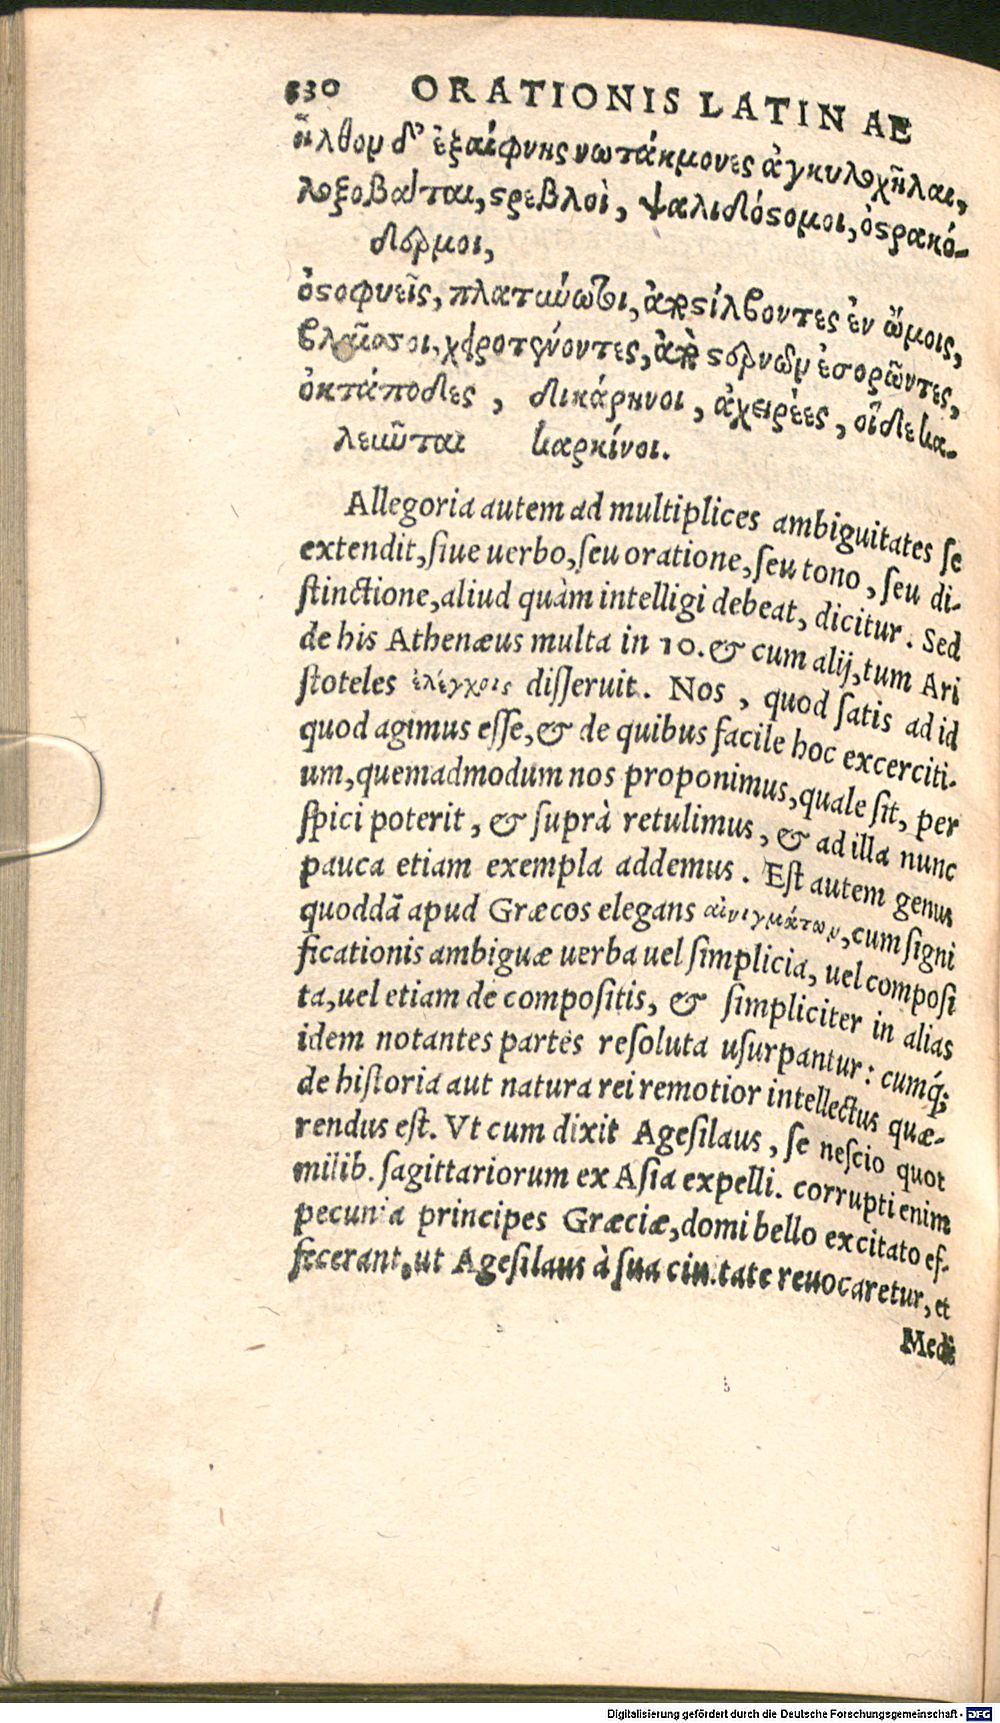 530 ORATIONIS LATIN AE
ἦλθον δ' ἐξαίφνης νωτάκμονες ἀγκυλοχῆλαι,
λοξοβάται, στρεβλοὶ, ψαλιδόστομοι, ὀστρακό-
δερμοι,
ὀστοφυεῖς, πλατύνωτοι, ἀποστίλβοντες ἐν ὤμοις,
βλαισοὶ, χειροτένοντες, ἀπὸ στέρνων ἐσορῶντες,
ὀκτάποδες, δικάρηνοι, ἀχειρέες, οἵδε κα-
λεῦνται καρκίνοι.
Allegoria autem ad multiplices ambiguitates ſe
extendit, ſiue uerbo, ſeu oratione, ſeu tono, ſeu di-
ſtinctione, aliud quàm intelligi debeat, dicitur. Sed
de his Athenæus multa in 10. & cum alij, tum Ari
ſtoteles ἐλέγχοις diſſeruit. Nos, quod ſatis ad id
quod agimus eſſe, & de quibus facile hoc excerciti-
um, quemadmodum nos proponimus, quale ſit, per
ſpici poterit, & ſuprà retulimus, & ad illa nunc
pauca etiam exempla addemus. Eſt autem genus
quoddã apud Græcos elegans αἰνιγμάτων, cum ſigni
ficationis ambiguæ uerba uel ſimplicia, uel compoſi
ta, uel etiam de compoſitis, & ſimpliciter in alias
idem notantes partes reſoluta uſurpantur: cumq́;
de hiſtoria aut natura rei remotior intellectus quæ-
rendus eſt. Vt cum dixit Ageſilaus, ſe neſcio quot
milib. ſagittariorum ex Aſia expelli. corrupti enim
pecunia principes Græciæ, domi bello excitato ef-
fecerant, ut Ageſilaus à ſua ciuitate reuocaretur, et
Medi
Digitalisierung gefördert durch die Deutsche Forschungsgemeinschaft - DFG